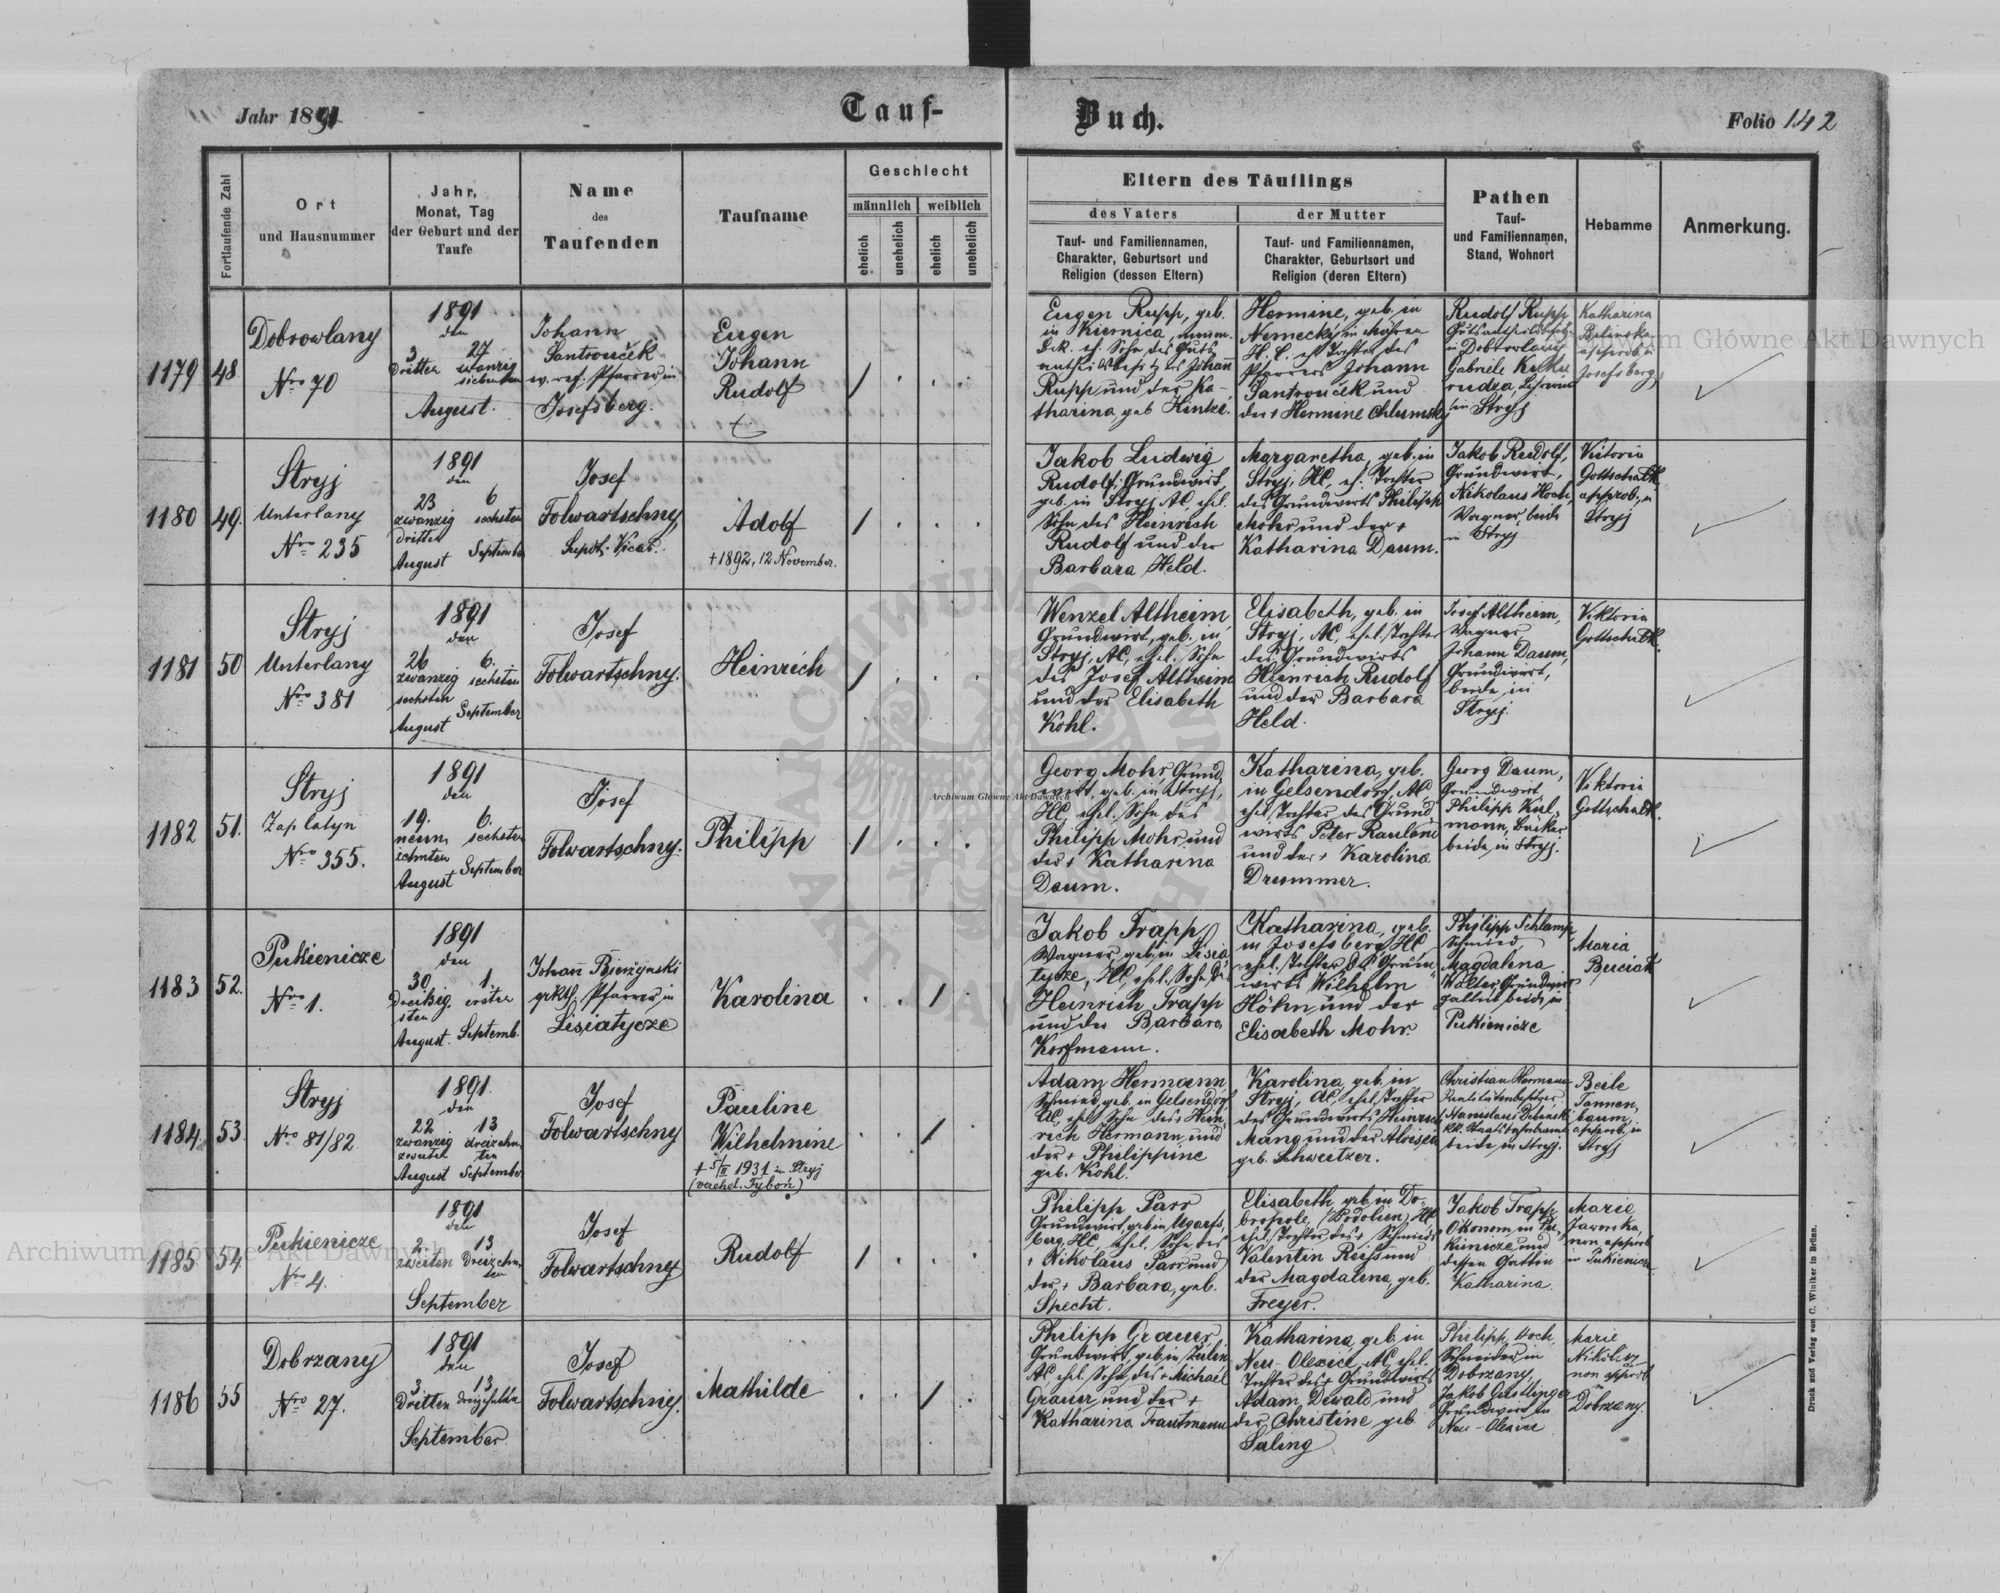 Jahr 1891
Tauf-
Buch.
Folio 142
Fortlaufende Zahl
Ort
und Hausnummer
Jahr,
Monat, Tag
der Geburt und der
Taufe
Name
des
Taufenden
Taufname
Geschlecht
männlich
weiblich
ehelich
unehelich
ehelich
unehelich
Eltern des Täuflings
des Vaters
Tauf- und Familiennamen,
Charakter, Geburtsort und
Religion (dessen Eltern)
der Mutter
Tauf- und Familiennamen,
Charakter, Geburtsort und
Religion (deren Eltern)
Pathen
Tauf-
und Familiennamen,
Stand, Wohnort
Hebamme
Anmerkung.
1179
48
Dobrowlany
Nro 70
1891
den
3 27
dritten
August.
Johann
Jantrouček
w. ref. Pfarrer in
Josefsberg.
Eugen
Johann
Rudolf
Eugen Rupp, geb.
in Kiernica,
Rupp und der Ka-
tharina geb Hintze.
Hermine, geb. in
Nemecký in Mähren
H. C. eh. Tochter des
Pfarrers Johann
Jantrouček und
der + Hermine Chlumsky
Rudolf Rupp
in Dobrowlany
Gabriele
Lehrerin
in Stryj
Katharina
approb. in
Josefsberg
1180
49.
Stryj
Unterlany
Nro 235
1891
den
23 6
zwanzig sechsten
dritten
August September
Josef
Folwartschny
Supdt. Vicar.
Adolf
+ 1892, 12 November.
Jakob Ludwig
Rudolf, Grundwirt,
geb. in Stryj, AC, ehel.
Sohn des Heinrich
Rudolf und der
Barbara Held.
Margaretha, geb. in
Stryj, HC, eh. Tochter
des Grundwirts Philipp
Mohr und der +
Katharina Daum.
Jakob Rudolf,
Grundwirt,
Nikolaus Hoch,
Wagner, beide
in Stryj
Victoria
Gottschalk
approb. in
Stryj
1181
50
Stryj
Unterlany
Nro 381
1891
den
26 6.
zwanzig sechsten
sechsten
August September
Josef
Folwartschny.
Heinrich
Wenzel Altheim,
Grundwirt, geb. in
Stryj, AC, ehel. Sohn
des Josef Altheim
und der Elisabeth
Kohl.
Elisabeth, geb. in
Stryj, AC, ehel. Tochter
des Grundwirts
Heinrich Rudolf
und der Barbara
Held.
Josef Altheim,
Wagner,
Johann Daum,
Grundwirt,
beide in
Stryj.
Viktoria
Gottschalk.
1182
51.
Stryj
Zaplatyn
Nro 355.
1891
den
19. 6.
neun sechsten
zehnten
August September
Josef
Folwartschny.
Philipp
Georg Mohr, Grund-
wirt, geb. in Stryj,
HC, ehel. Sohn des
Philipp Mohr und
der + Katharina
Daum.
Katharina, geb.
in Gelsendorf, AC
ehel. Tochter des Grund-
wirts Peter
und der + Karolina
Drummer.
Georg Daum,
Grundwirt,
Philipp Kul-
mann, Bäcker
beide in Stryj.
Viktoria
Gottschalk.
1183
52.
Pukienicze
Nro 1.
1891
den
30 1.
Dreißig- erster
sten
August. Septemb.
Johann
grkth. Pfarrer in
Lisiatycze
Karolina
Jakob Trapp,
Wagner, geb. in Lisia-
tycze, HC, ehel. Sohn d.
Heinrich Trapp
und der Barbara
Korfmann.
Katharina, geb.
in Josefsberg, HC
ehel. Tochter d. Grund-
wirts Wilhelm
Höhn und der
Elisabeth Mohr.
Philipp Schlamp
Schmied,
Magdalena
Walter, Grundwirts-
gattin beide in
Pukienicze
Maria
Buciak
1184
53.
Stryj
Nro 81/82
1891.
den
22 13
zwanzig dreizehn-
zweiten ten
August September
Josef
Folwartschny
Pauline
Wilhelmine
+ 5/II 1931 in Stryj
(verehel. Tyboń)
Adam Hermann,
Schmied, geb. in Gelsendorf
AC, ehel. Sohn des Hein-
rich Hermann und
der + Philippine
geb. Kohl.
Karolina, geb. in
Stryj, AC, ehel. Tochter
des Grundwirts Heinrich
Mang und der Aloisia
geb. Schweitzer.
Christian Hermann
Realitätenbesitzer,
Stanislaus
beide in Stryj.
Beile
Tannen-
baum,
approb. in
Stryj
1185
54
Pukienicze
Nro 4.
1891
den
2 13
zweiten Dreizehn-
ten
September
Josef
Folwartschny
Rudolf
Philipp Parr
Grundwirt, geb. in Ugarts-
berg, HC, ehel. Sohn des
+ Nikolaus Parr und
der + Barbara, geb.
Specht.
Elisabeth, geb. in Do-
bropole, (Podolien), HC
ehel. Tochter des + Schmieds
Valentin Reiß und
der Magdalena, geb.
Freyer.
Jakob Trapp,
Ökonom in Pu-
kienicze und
dessen Gattin
Katharina.
Marie
Jaworska,
non approb.
in Pukienicze
1186
55
Dobrzany
Nro 27.
1891
den
3 13
Dritten dreizehnten
September.
Josef
Folwartschny.
Mathilde
Philipp Grauer,
Grundwirt, geb. in
AC, ehel. Sohn des + Michael
Grauer und der +
Katharina Trautmann
Katharina, geb. in
Neu-Olexice, AC, ehel.
Tochter des + Grundwirts
Adam Dewald und
der Christine geb.
Saling
Philipp Koch,
Schneider in
Dobrzany,
Jakob
Grundwirt in
Neu-Olexice
Marie
non approb
in
Dobrzany.
Druck und Verlag von C. Winiker in Brünn.
Archiwum Główne Akt Dawnych
Archiwum Główne Akt Dawnych
Archiwum Główne Akt Dawnych